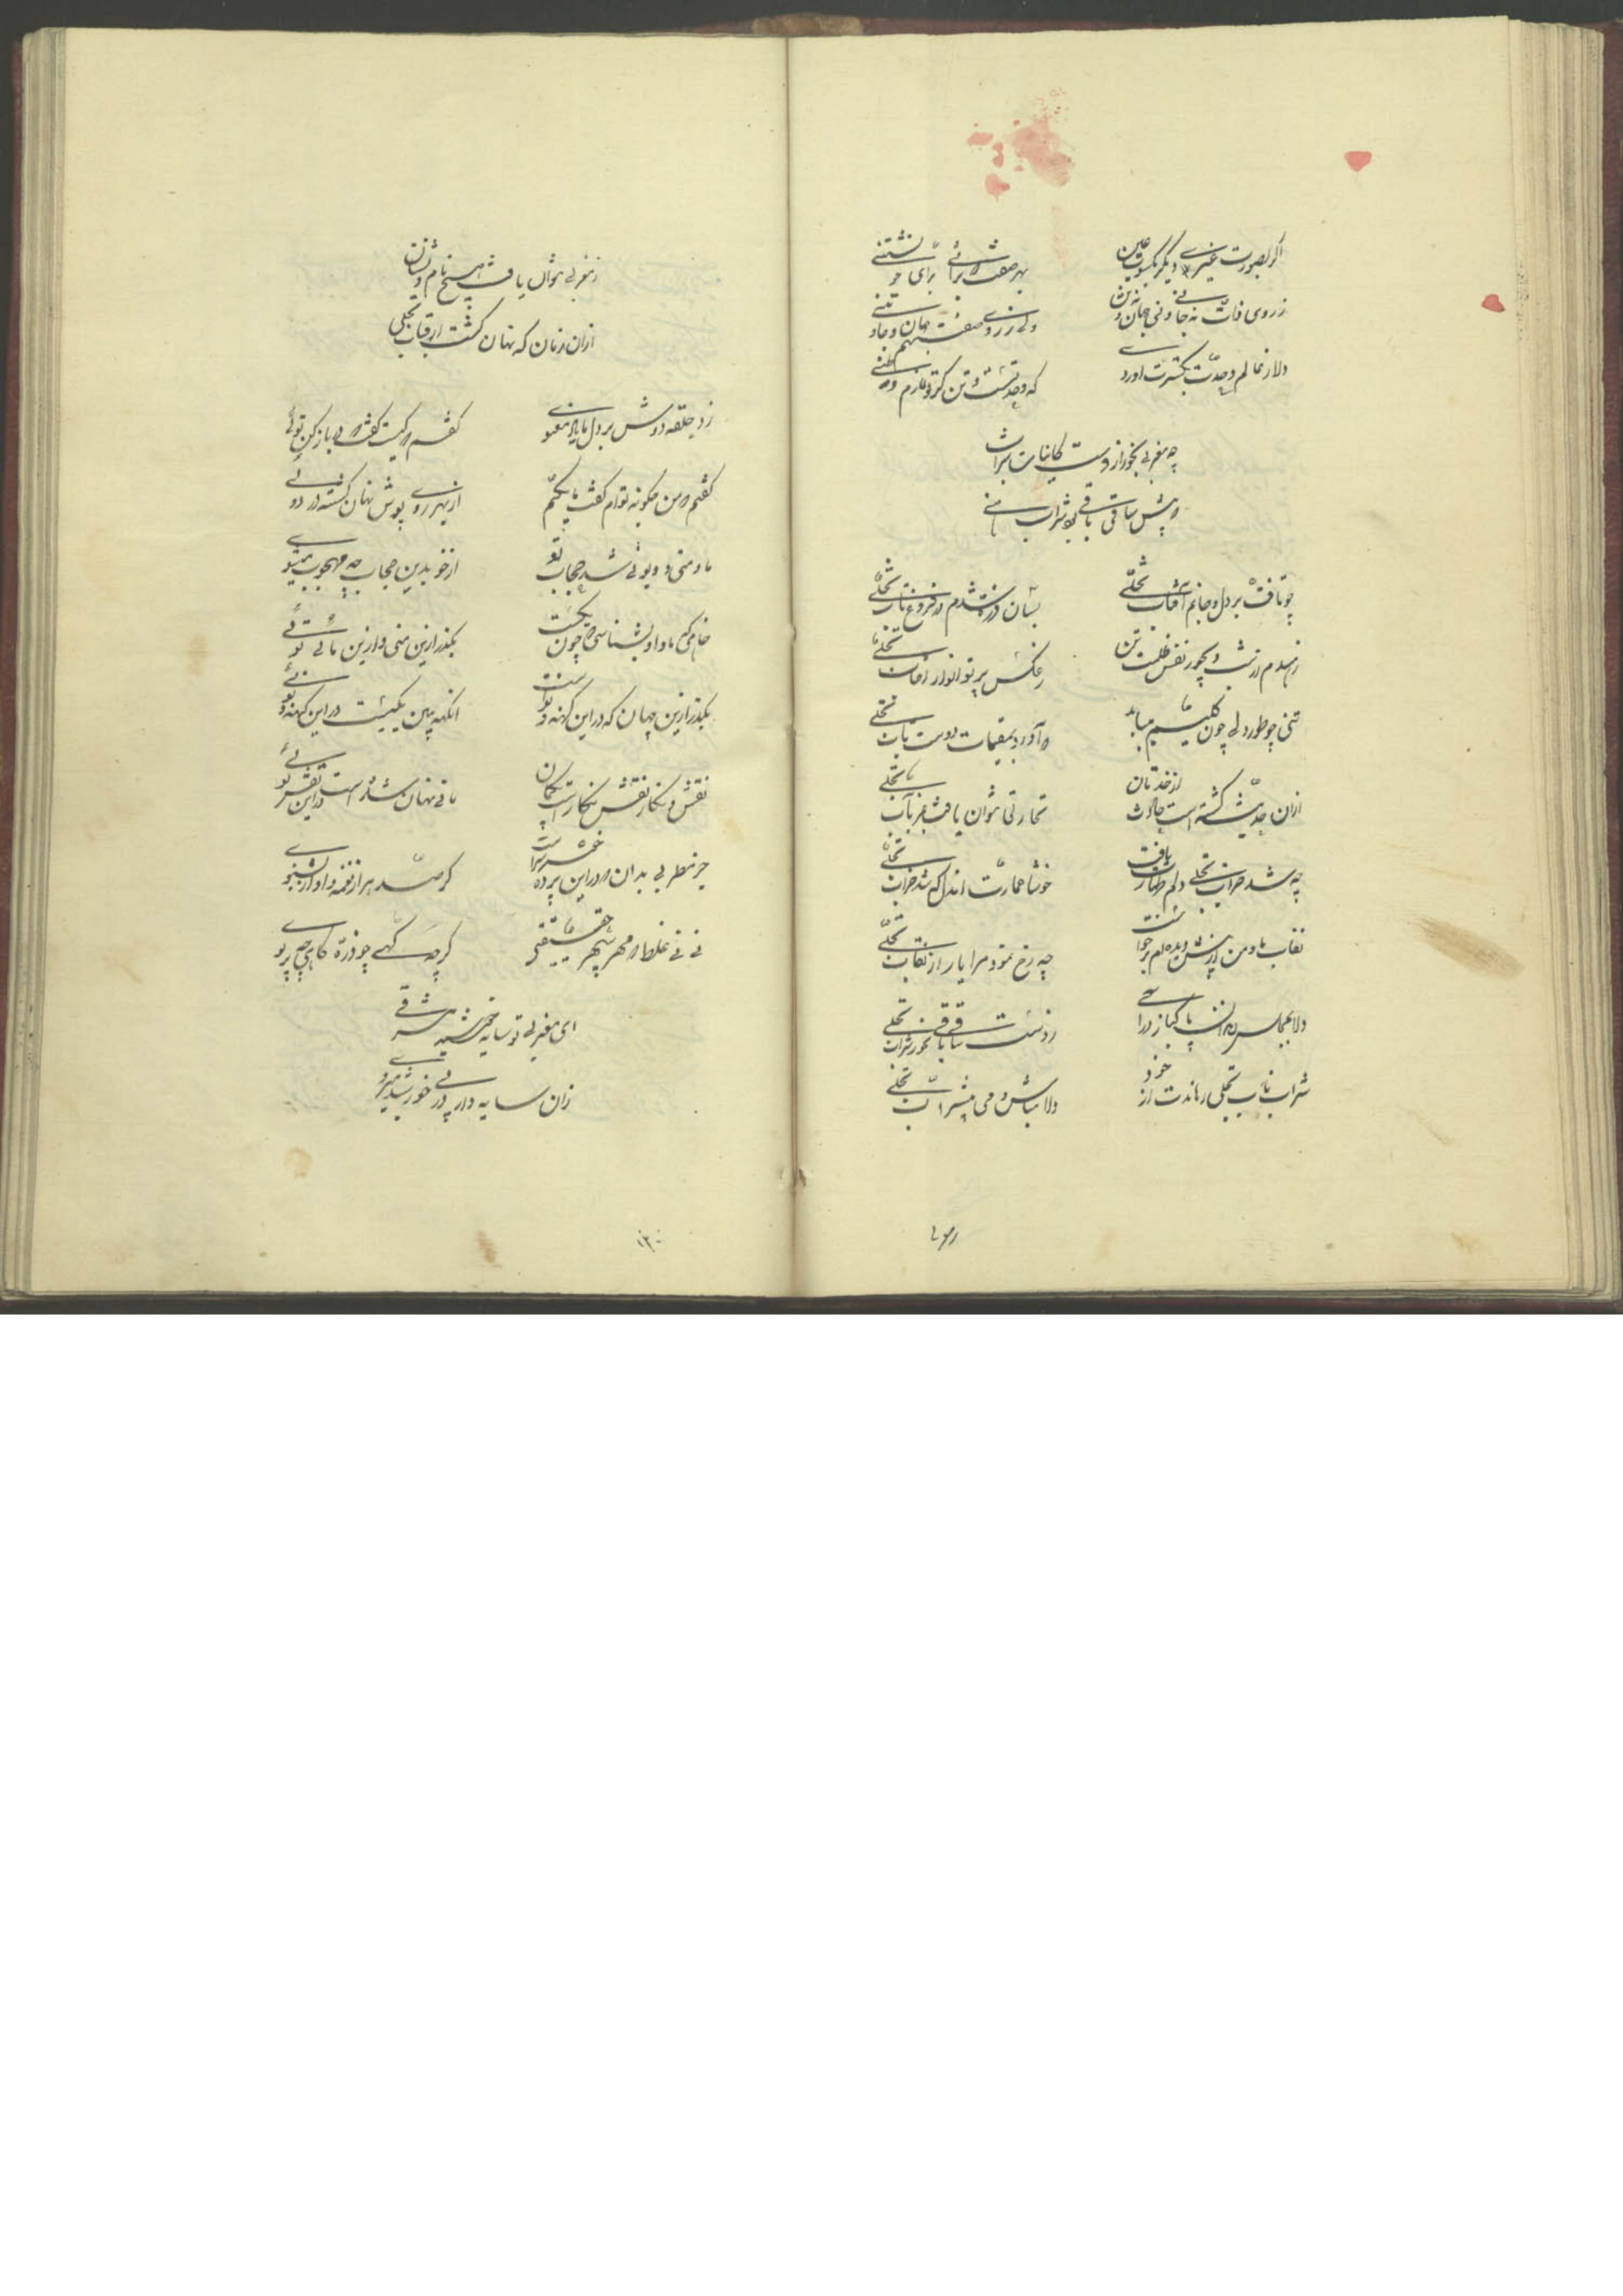 اگر بصورت غیری و دیگر بکسوت عین
بهر صفت که برائی برای خو
ز روی ذات نه جانی و نی جهان و نه تن
ولی ز روی صفت هم جهان و جان و تنی
دلا ز عالم وحدت بکثرت اورد
که وحدتست
چه مغربی بخور از دست کاینات شراب
که پیش ساقی باقی بود شراب هنی
چو تافت بر دل و جانم آفتاب تجلی
بسان ذره شدم در فروغ تاب تجلی
رهیدم از شب دیجور نفس و ظلمت تن
ز عکس پرتو انوار آفتاب تجلی
تنی چو طور دلی چون کلیم میباید
که آورد بمقیمات دوست تاب تجلی
ازان حدیث گشته است
طهارتی نتوان یافت جز بآب تجلی
چه شد خراب تجلی دلم عمارت یافت
خوشا عمارت اندل که شد خراب تجلی
نقاب ما و من از پیش دیده ام برخواست
چه رخ نمود مرا یار از نقاب تجلی
دلا بمجلس رندان پاکباز درا
ز دست ساقی باقی بخور شراب تجلی
شراب ناب تجلی رهاندت از خود
دلا بباش دمی بی شراب تجلی
ز مغربی نتوان یافت هیچ نام و نشان
ازان زمان که نهان گشت از قباب تجلی
زد حلقه دوش بر دل ما یار معنوی
گفتم که کیست گفت که در باز کن توئی
گفتم که من چگونه توام گفت ما یکیم
از بهر روی پوش نهان گشته در دوئی
ما و منی و او و توئی شد حجاب تو
از خود بدین حجاب چه محجوب میشوی
خواهی که ما و او بشناسی که چون یکیست
بگذر ازین منی و ازین مائی توئی
بگذر ازین جهان که در این کهنه و نو است
انگه ببین یکیست در این کهنه و نوئی
نقش و نگار نقش نگار است بیگمان
مانی نهان شده است در این نقش
جز مطربی بدان که در این پرده خوش سراست
گر صد هزار نغمه و آواز بشنوی
نی نی غلط که مهر سپهر حقیقتی
گرچه گهی چو ذره گاهی چو پرتوی
ای مغربی تو سایه خورشید مشرقی
زان سایه وار در پی خورشید میروی
۱۳۰